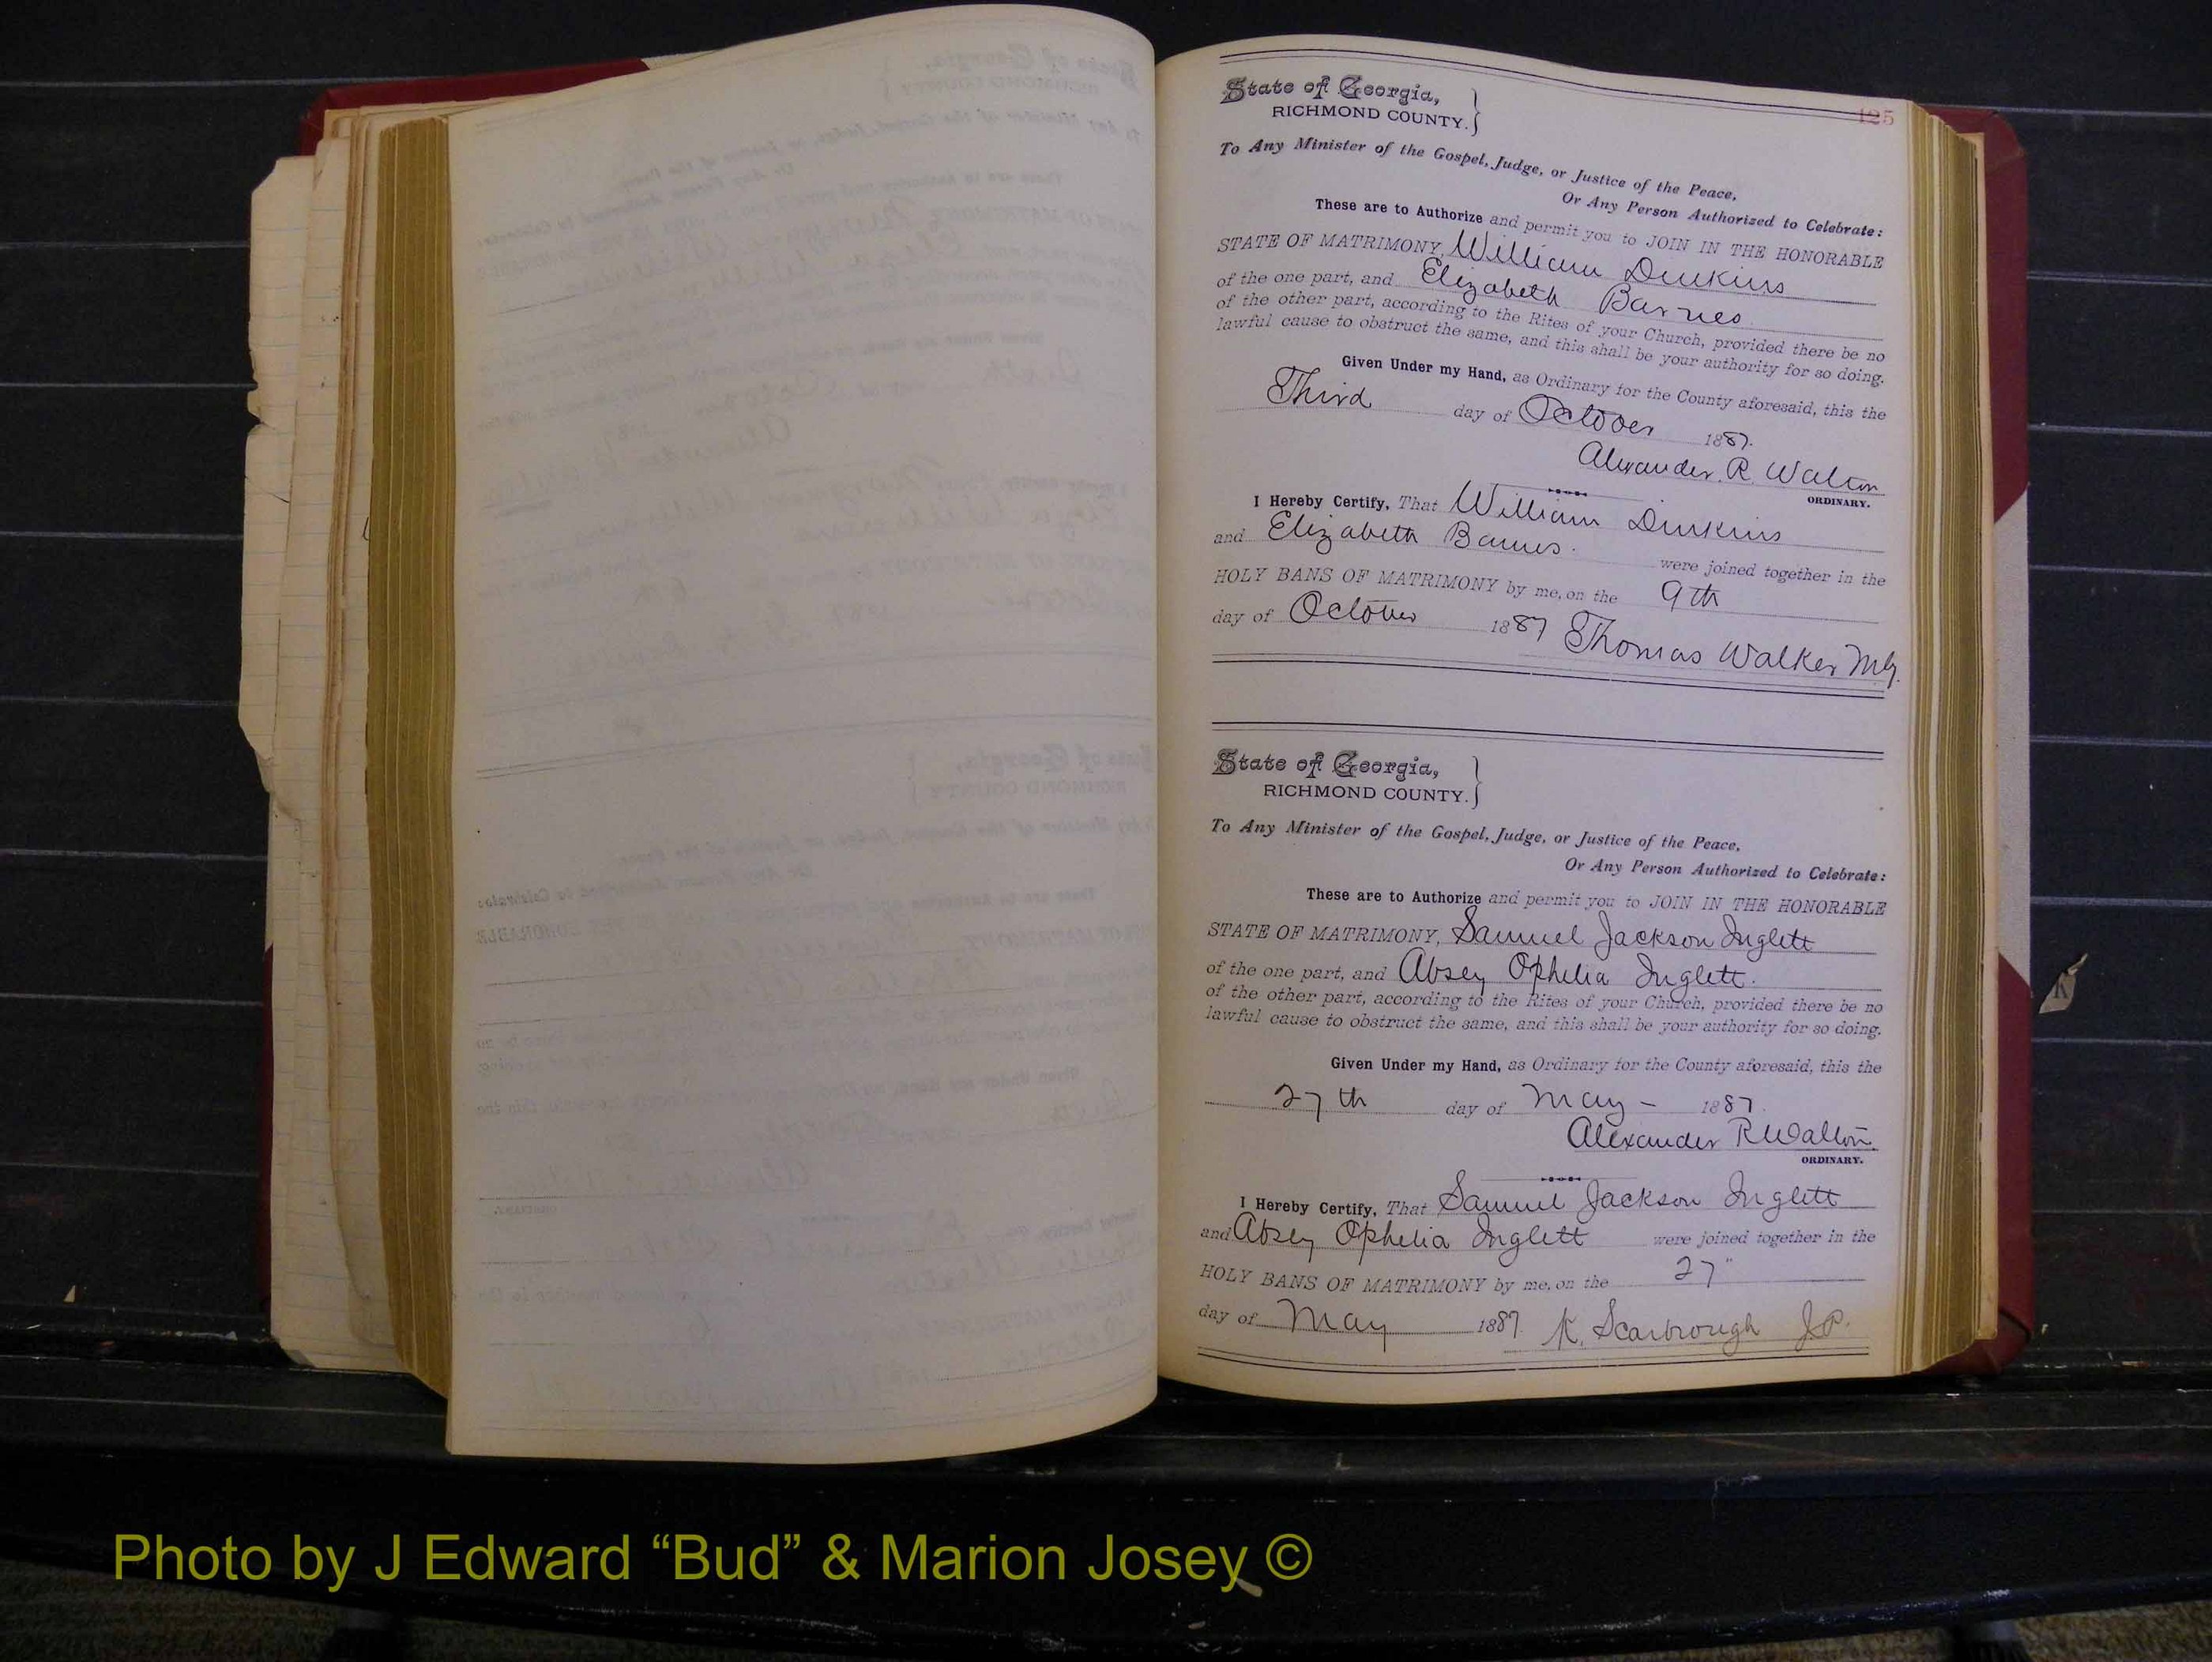 125
State of Georgia,
RICHMOND COUNTY.
To Any Minister of the Gospel, Judge, or Justice of the Peace,
Or Any Person Authorized to Celebrate:
These are to Authorize and permit you to JOIN IN THE HONORABLE
STATE OF MATRIMONY, William Dinkins
of the one part, and Elizabeth Barnes
of the other part, according to the Rites of your Church, provided there be no
lawful cause to obstruct the same, and this shall be your authority for so doing.
Given Under my Hand, as Ordinary for the County aforesaid, this the
Third day of October 1887.
Alexander R. Walton
ORDINARY.
I Hereby Certify, That William Dinkins
and Elizabeth Barnes. were joined together in the
HOLY BANS OF MATRIMONY by me, on the 9th
day of October 1887 Thomas Walker
State of Georgia,
RICHMOND COUNTY.
To Any Minister of the Gospel, Judge, or Justice of the Peace,
Or Any Person Authorized to Celebrate:
These are to Authorize and permit you to JOIN IN THE HONORABLE
STATE OF MATRIMONY, Samuel Jackson Inglett
of the one part, and Absey Ophelia Inglett.
of the other part, according to the Rites of your Church, provided there be no
lawful cause to obstruct the same, and this shall be your authority for so doing.
Given Under my Hand, as Ordinary for the County aforesaid, this the
27th day of May - 1887.
Alexander R Walton.
ORDINARY.
I Hereby Certify, That Samuel Jackson Inglett
and Absey Ophelia Inglett were joined together in the
HOLY BANS OF MATRIMONY by me, on the 27"
day of May 1887. K. Scarbrough J.P.
Photo by J Edward “Bud” & Marion Josey ©